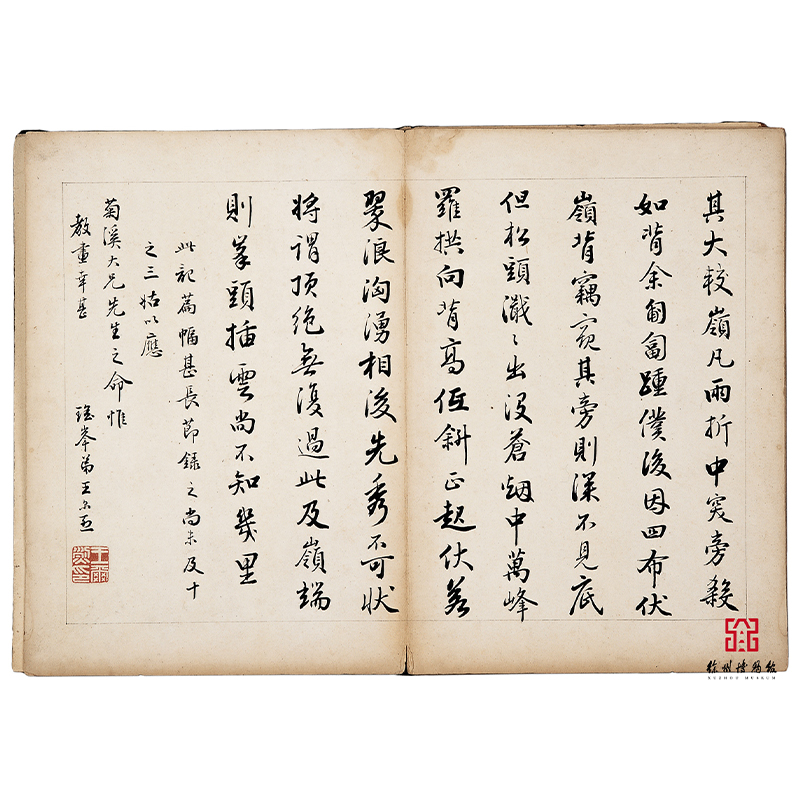 其大較嶺凡兩折中突旁殺
如背余匍匐踵僕後因四布伏
嶺背竊窺其旁則深不見底
但松頭濈〻出沒蒼烟中萬峰
羅拱向背高低斜正起伏若
翠浪洶湧相後先秀不可狀
將謂頂絕無復過此及嶺端
則峯頭插雲尚不知幾里
此記篇幅甚長節錄之尚未及十
之三姑以應
菊溪大兄先生之命惟
教畫幸甚
瑤峯弟王尔烈
徐州博物館
XUZHOU MUSEUM